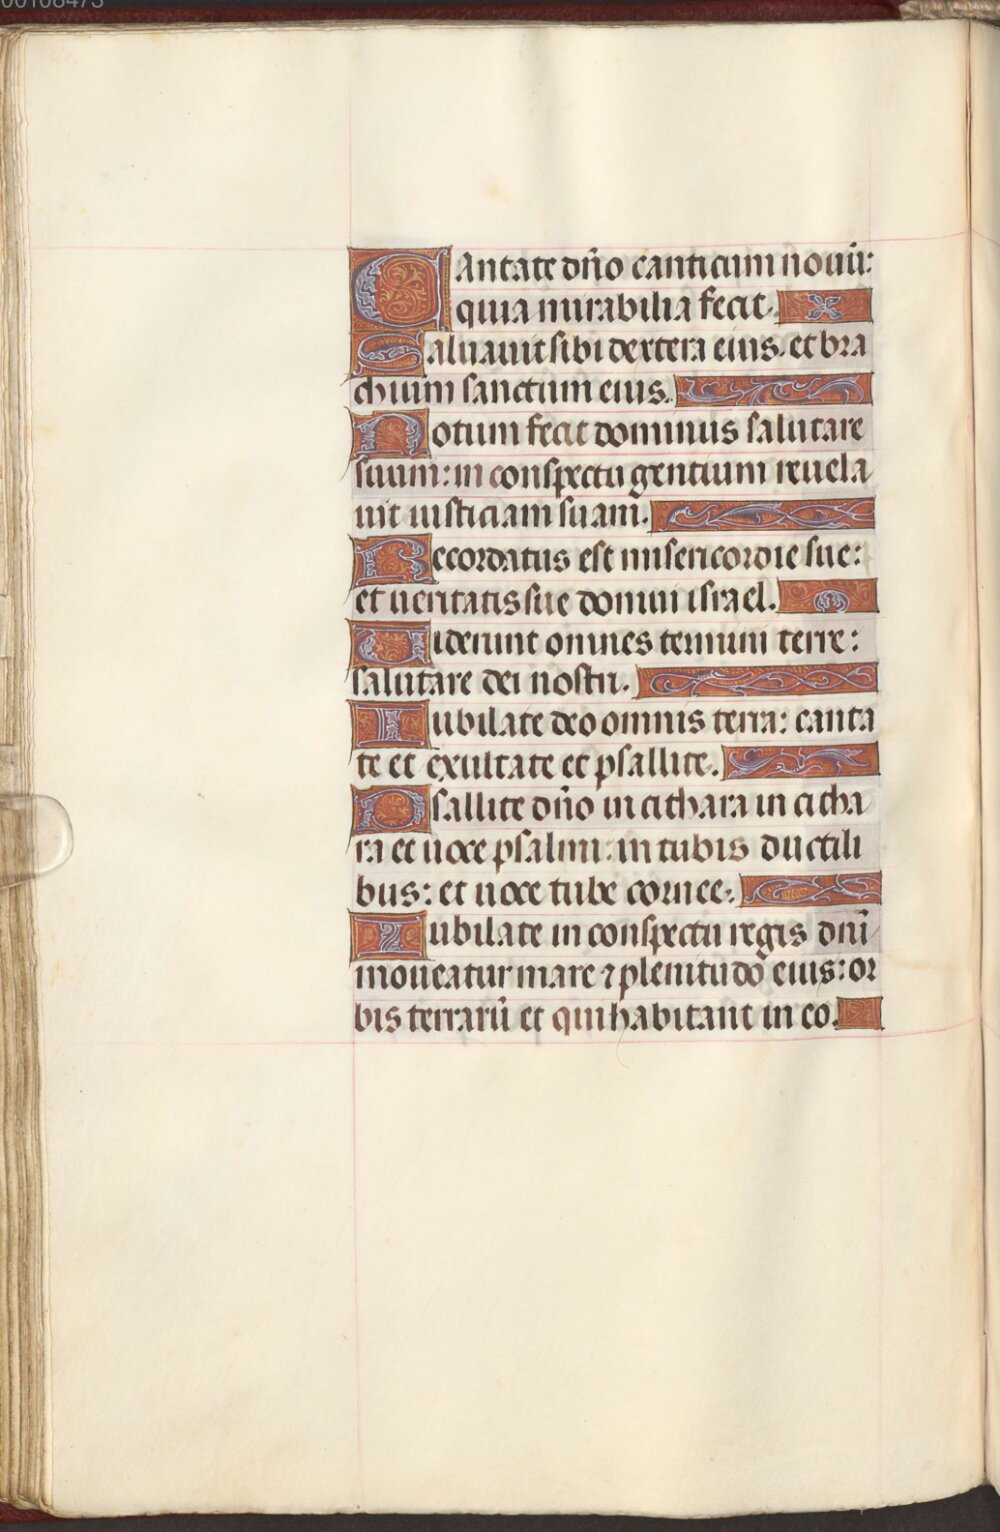 CAntate dño canticum nouū:
quia mirabilia fecit.
Saluauit sibi dextera eius. et bra
chium sanctum eius.
Notum fecit dominus salutare
suum: in conspectu gentium reuela
uit iusticiam suam.
Recordatus est misericordie sue:
et ueritatis sue domui israel.
Uiderunt omnes termini terre:
salutare dei nostri.
Iubilate deo omnis terra: canta
te et exultate et psallite.
Psallite dño in cithara in citha
ra et uoce psalmi: in tubis ductili
bus: et uoce tube cornee.
Iubilate in conspectu regis dñi
moueatur mare ⁊ plenitudo eius: or
bis terrarū et qui habitant in eo.